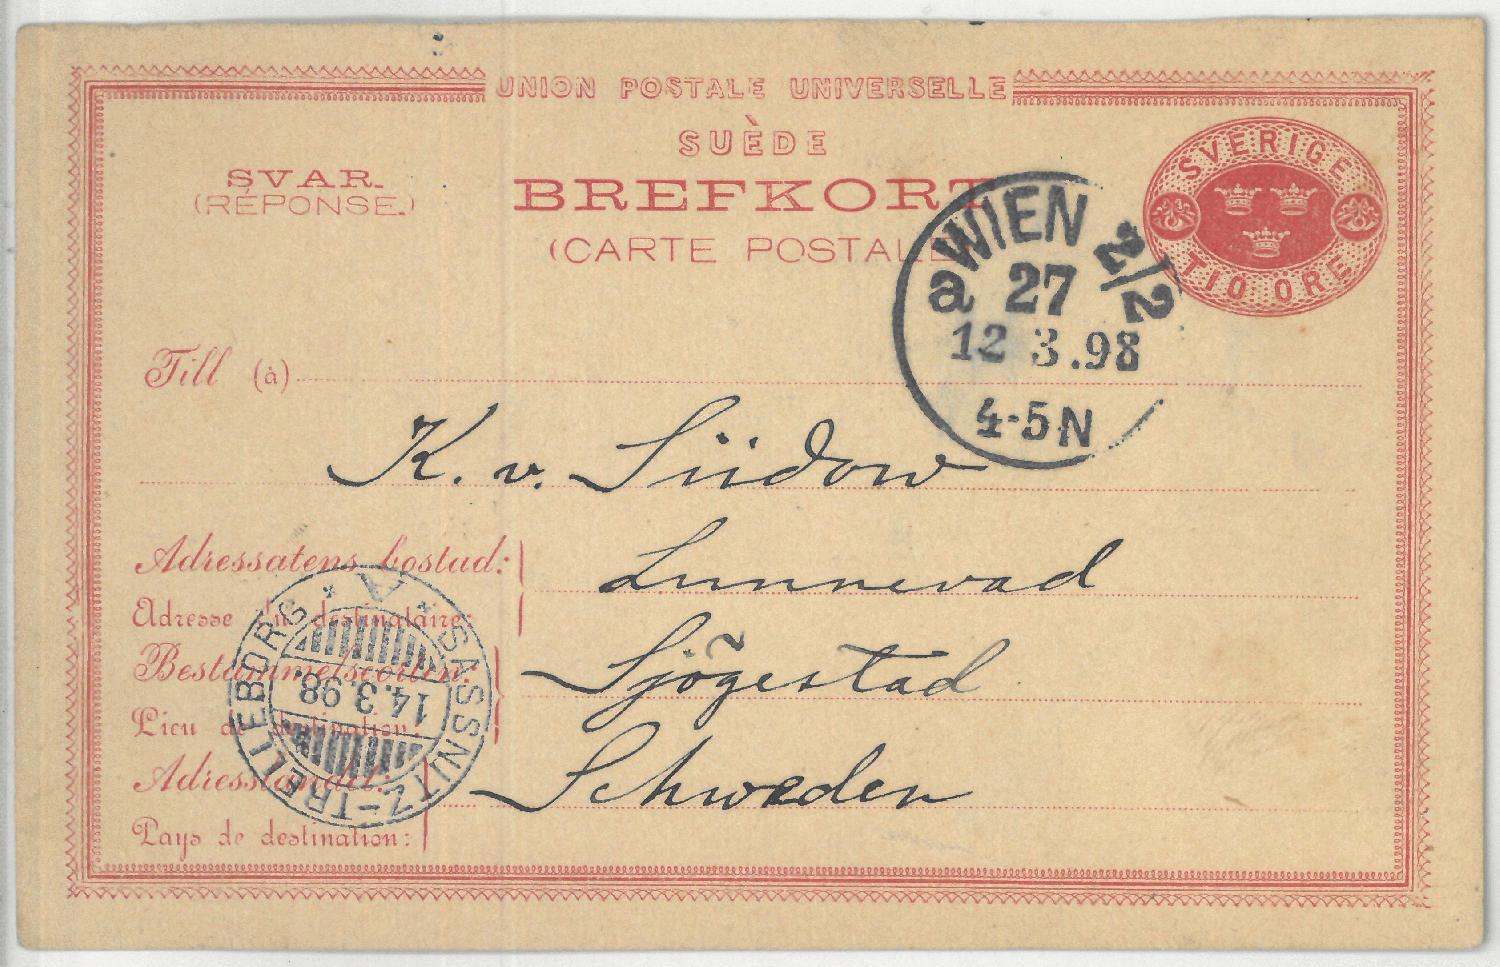 UNION POSTALE UNIVERSELLE
SUÈDE
SVAR.
(RÉPONSE.)
BREFKORT
(CARTE POSTALE)
SVERIGE
TIO ÖRE
WIEN 2/2
a 27
12 3.98
4-5N
Till (à)
K. v. Südow
Adressatens bostad:
Adresse du destinataire:
Lunnevad
Bestämmelseorten:
Lieu de destination:
Sjögestad
Adresslandet:
Pays de destination:
Schweden
A
SASSNITZ-TRELLEBORG
14.3.98.